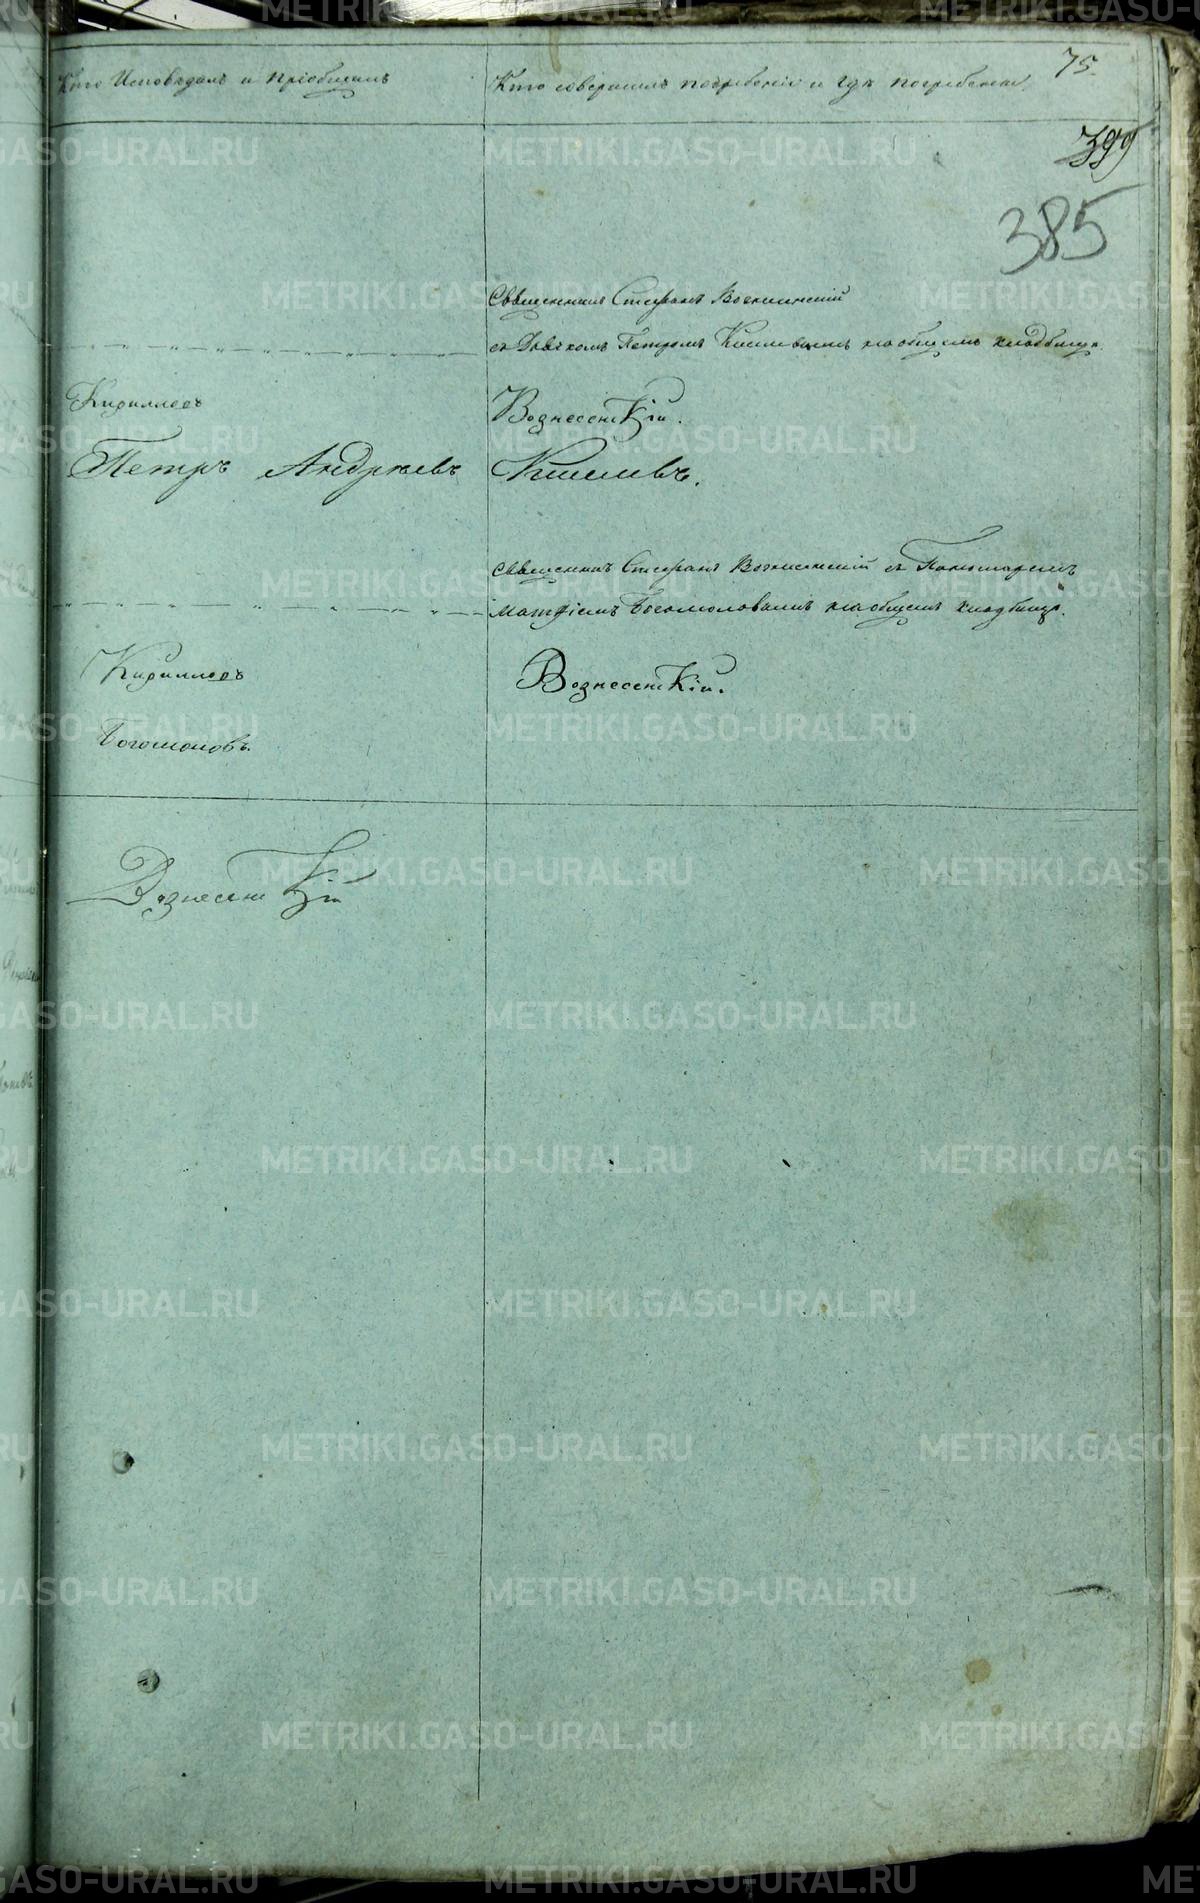 75.
Кто Исповѣдалъ и пріобщилъ
Кто совершилъ погребеніе и гдѣ погребены.
399
385
Священникъ Стефанъ Вознесенскій
съ Дьячкомъ Петромъ Киселевымъ на общемъ кладбищѣ.
Кириллъ Вознесенскій.
Петръ Андреевъ Киселевъ.
Священникъ Стефанъ Вознесенскій съ Пономаремъ
Матѳіемъ Богомоловымъ на общемъ кладбищѣ.
Вознесенскій.
Богомоловъ.
Вознесенскій
METRIKI.GASO-URAL.RU